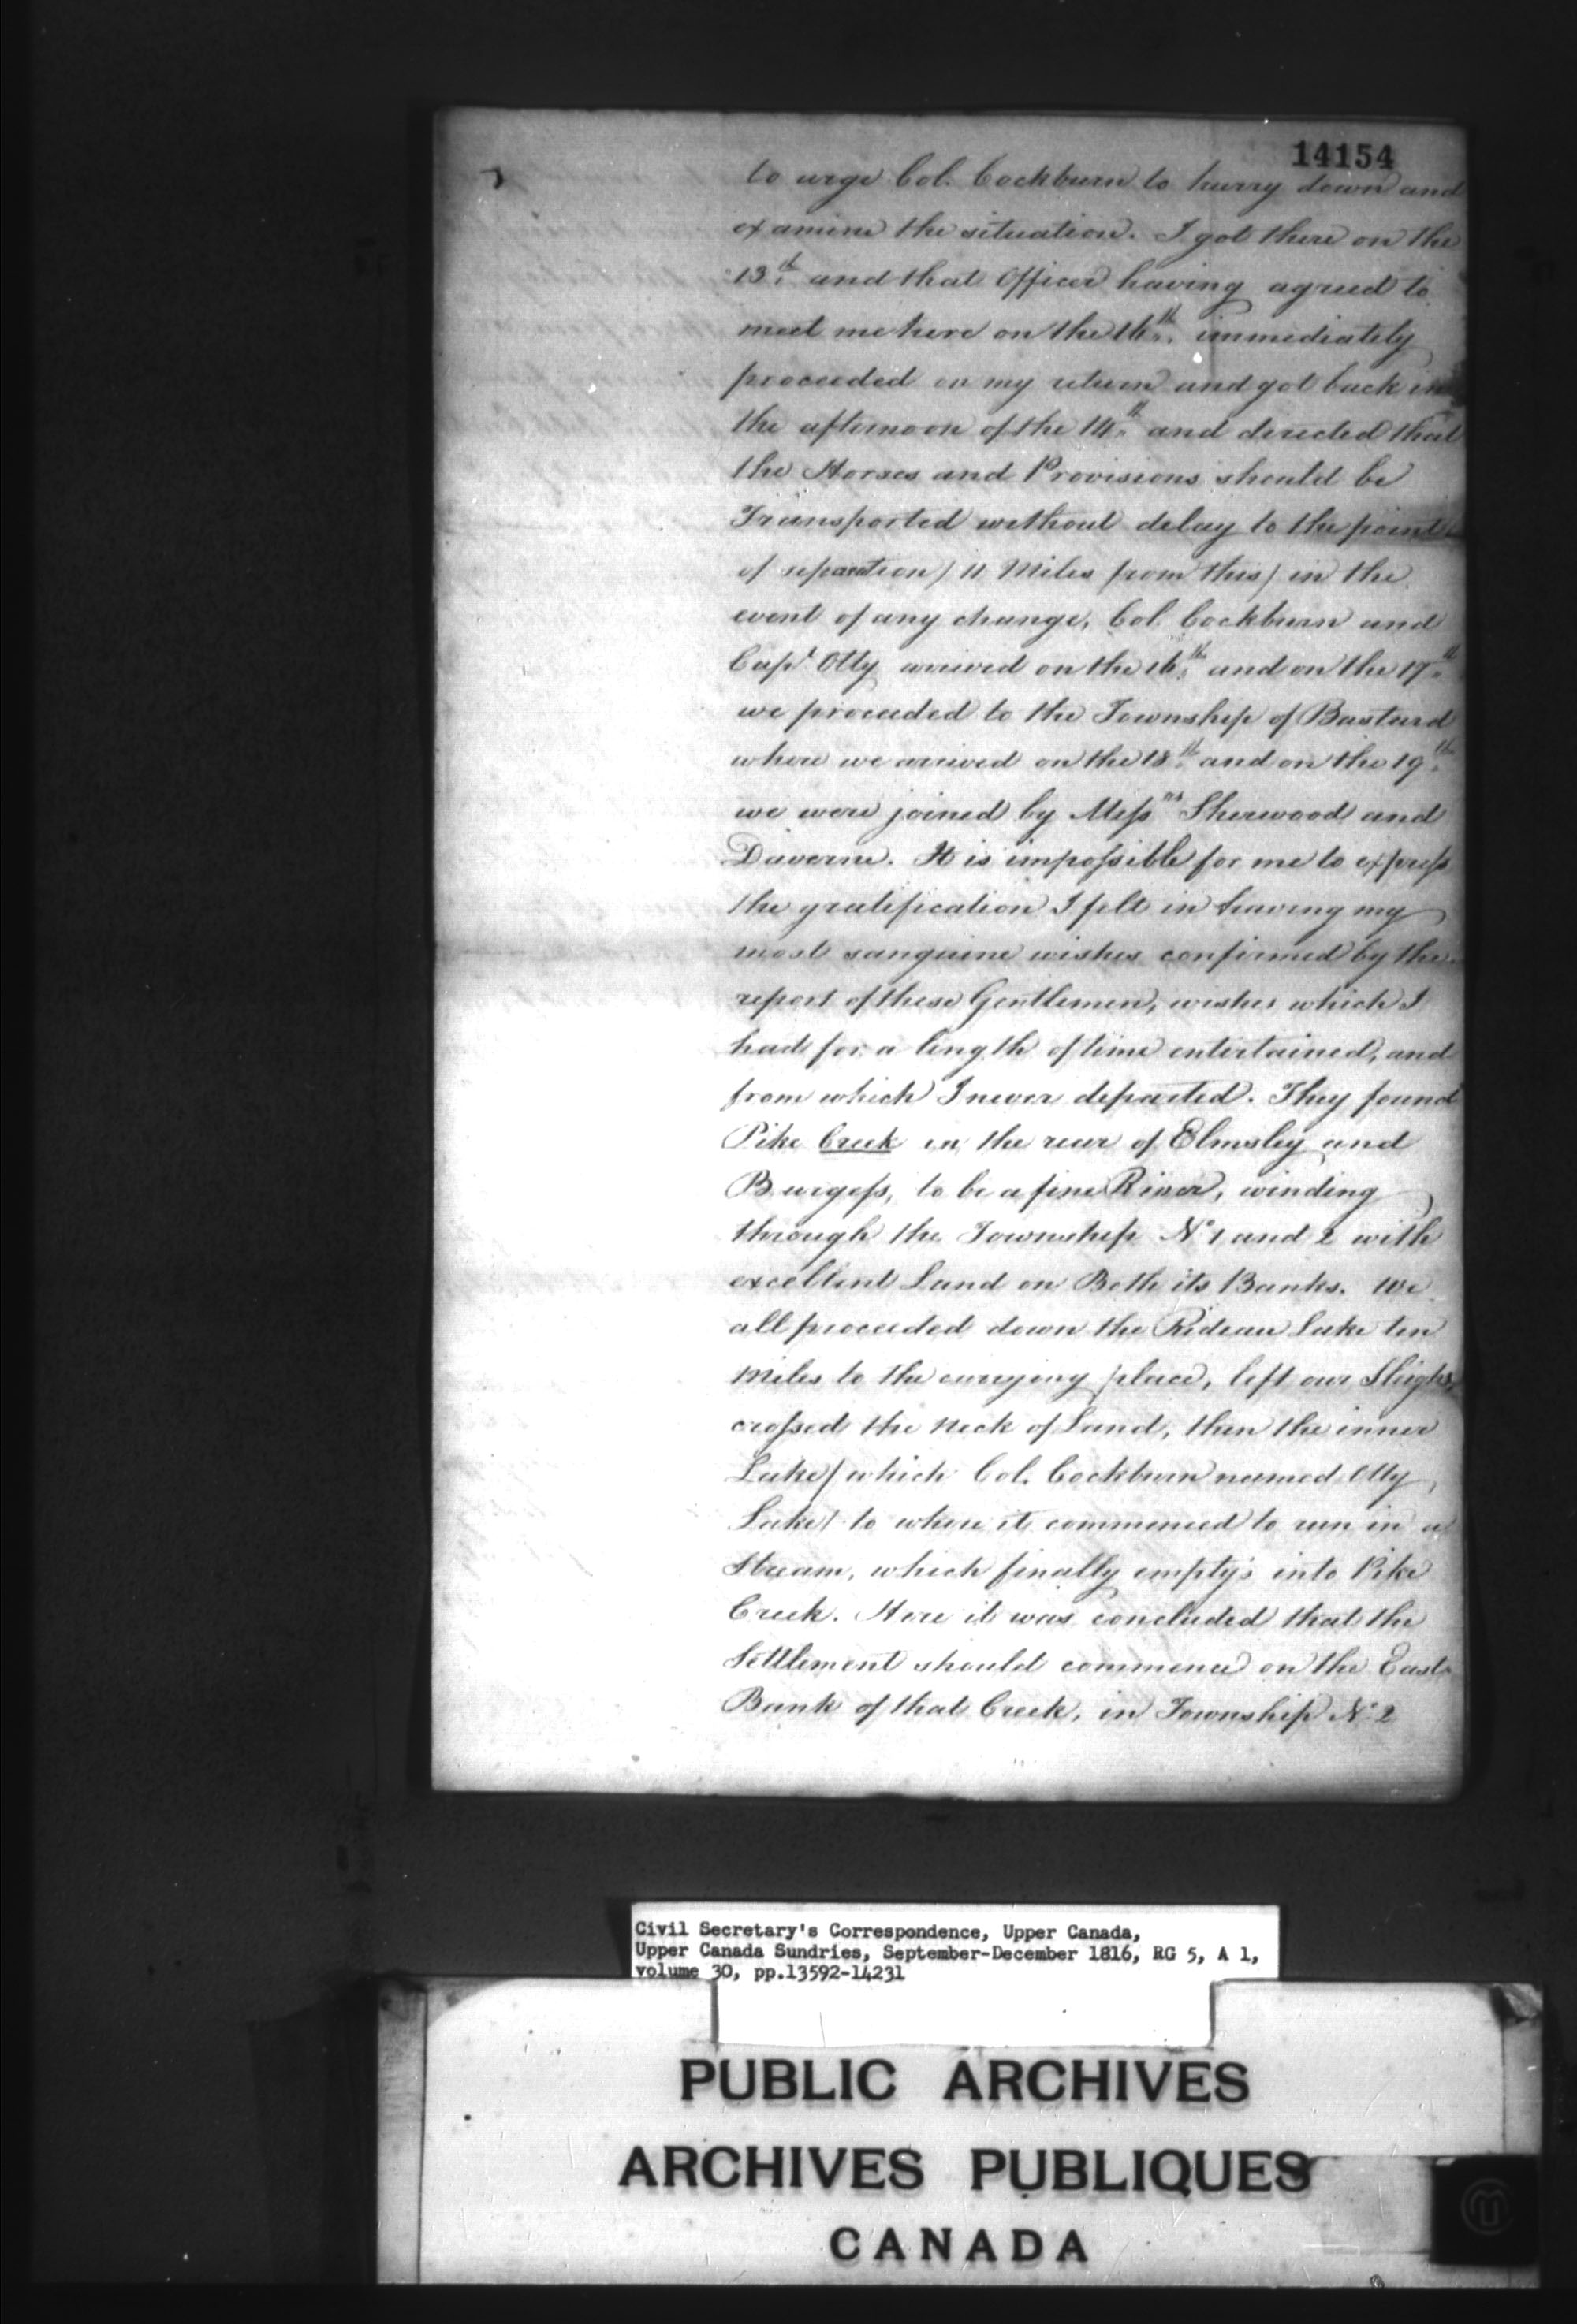 14154
to urge Col. Cockburn to hurry down and
examine the situation. I got there on the
13th and that Officer having agreed to
meet me here on the 16th. immediately
proceeded on my return and got back in
the afternoon of the 14th and directed that
the Horses and Provisions should be
Transported without delay to the point
of separation / 11 Miles from this / in the
event of any change, Col. Cockburn and
Capt Otty arrived on the 16th and on the 17th
we proceeded to the Township of Bastard
where we arrived on the 18th and on the 19th
we were joined by Messrs Sherwood and
Daverne. It is impossible for me to express
the gratification I felt in having my
most sanguine wishes confirmed by the
report of these Gentlemen, wishes which I
had for a length of time entertained, and
from which I never departed. They found
Pike Creek in the rear of Elmsley and
Burgess, to be a fine River, winding
through the Township No 1 and 2 with
excellent Land on Both its Banks. We
all proceeded down the Rideau Lake ten
Miles to the carrying place, left our Sleighs,
crossed the Neck of Land, then the inner
Lake / which Col. Cockburn named Otty
Lake / to where it commenced to run in a
Stream, which finally empty's into Pike
Creek. Here it was concluded that the
Settlement should commence on the East
Bank of that Creek, in Township No 2
Civil Secretary's Correspondence, Upper Canada,
Upper Canada Sundries, September-December 1816, RG 5, A 1,
volume 30, pp.13592-14231
PUBLIC ARCHIVES
ARCHIVES PUBLIQUES
CANADA